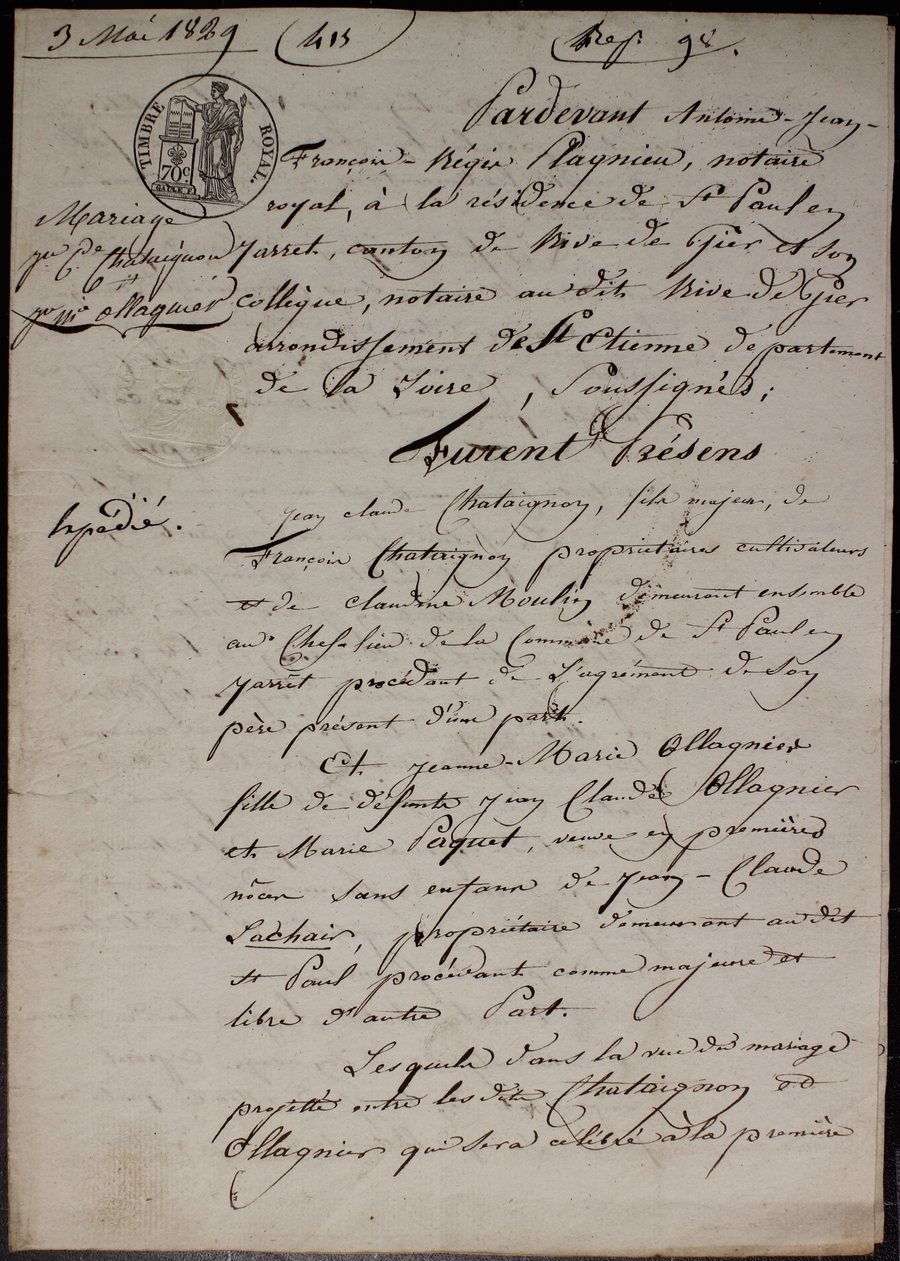 3 Mai 1829
413
Rep. 98.
TIMBRE ROYAL.
70c.
Pardevant Antoine-Jean-
François-Régis Plagnieu, notaire
royal, à la résidence de St Paul en
Jarret, canton de Rive de Gier et son
collègue, notaire au dit Rive de Gier
arrondissement de St Etienne departement
de la Loire, Soussignés;
Mariage
Chataignon
et
Ollagnier
Furent Présens
Expédié.
Jean claude Chataignon, fils majeur, de
François Chataignon propriétaires cultivateurs
et de claudine Moulin demeurant ensemble
au Chef-lieu de la Commune de St Paul en
Jarrêt procédant de L'agrément de son
père présent d'une part.
Et Jeanne-Marie Ollagnier
fille de défunts Jean Claude Ollagnier
et Marie Paquet, veuve en premières
nôces sans enfans de Jean-Claude
Lachair, propriétaire demeurant au dit
St Paul procédant comme majeure et
libre d'autre Part.
Lesquels dans la vue du mariage
projetté entre les dits Chataignon et
Ollagnier qui sera célébré à la première